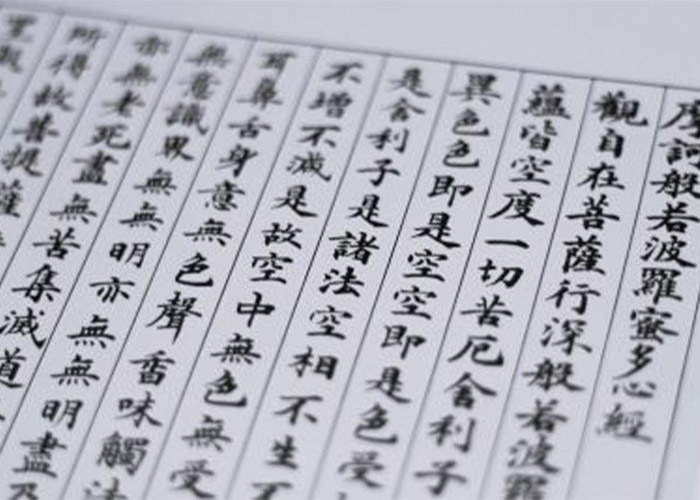 摩訶般若波羅蜜多心經
觀自在菩薩行深般若波羅
蘊皆空度一切苦厄舍利子
異色色即是空空即是色受
是舍利子是諸法空相不生不
不增不滅是故空中無色無受
耳鼻舌身意無色聲香味觸法
無意識界無無明亦無無明盡乃
亦無老死盡無苦集滅道
所得故菩提薩